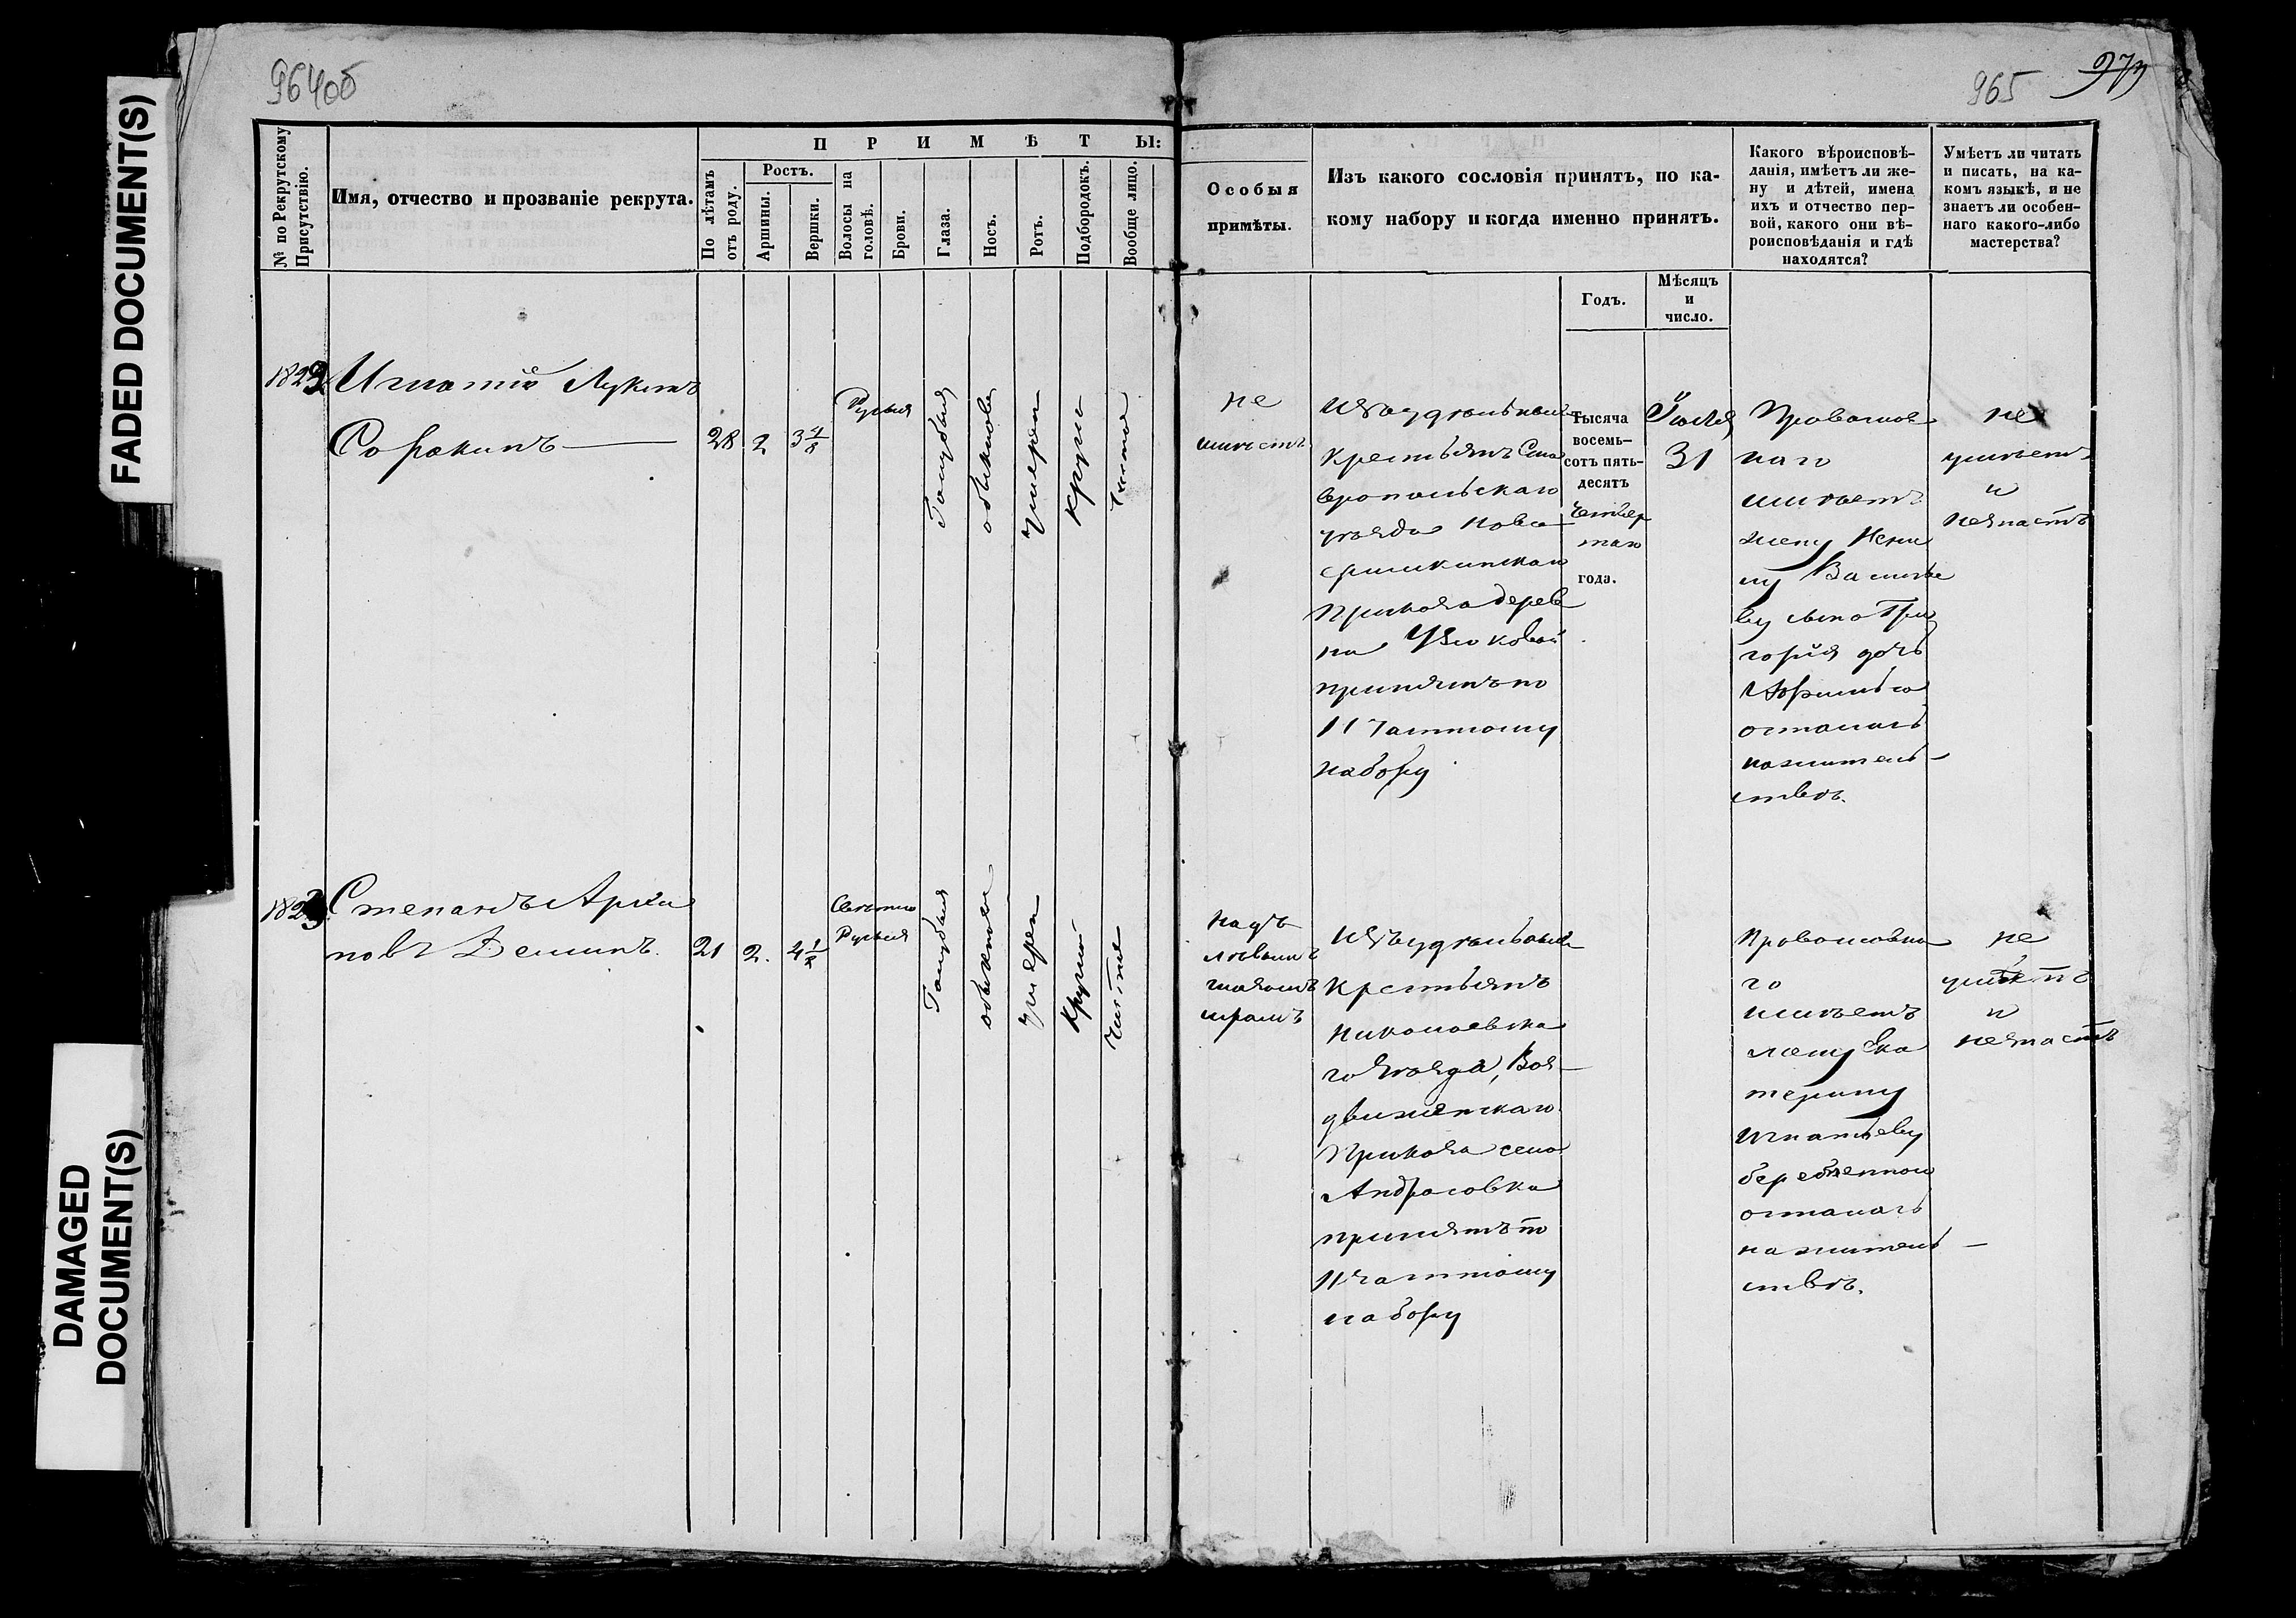 FADED DOCUMENT(S)
DAMAGED
DOCUMENT(S)
964об
965
№ по Рекрутскому
Присутствію.
Имя, отчество и прозваніе рекрута.
ПРИМѢТЫ:
По лѣтамъ
отъ роду.
Ростъ.
Аршины.
Вершки.
Волосы на
головѣ.
Брови.
Глаза.
Носъ.
Ротъ.
Подбородокъ.
Вообще лицо.
Особыя
примѣты.
Изъ какого сословія принятъ, по ка-
кому набору и когда именно принятъ.
Годъ.
Мѣсяцъ
и
число.
Какого вѣроисповѣ-
данія, имѣетъ ли же-
ну и дѣтей, имена
ихъ и отчество пер-
вой, какого они вѣ-
роисповѣданія и гдѣ
находятся?
Умѣетъ ли читать
и писать, на ка-
комъ языкѣ, и не
знаетъ ли особен-
наго какого-либо
мастерства?
Игнатій Лукинъ
Сорокинъ
28
2
3 4/8
Русыя
Голубыя
обыкнове
умерен
кругл
чистое
не
имѣетъ
Изъ удѣльныхъ
крестьянъ Ста
вропольскаго
уѣзда Ново
приказа дерев
ни Узюковой
принятъ по
11 частному
набору
Тысяча
восемь-
сотъ пять-
десятъ
четвер
таго
года.
Іюля
31
Православ
наго
имѣетъ
жену Ксені
ю Василье
ву сына Гри
горія дочь
остались
на житель-
ствѣ.
не
умѣетъ
и
незнаетъ
Степанъ Архи
повъ Деминъ.
21
2.
4 1/8
Свѣтло
Русыя
Голубыя
обыкнове
умерен
круглый
чистое
надъ
лѣвымъ
глазомъ
шрамъ
Изъ удѣльныхъ
крестьянъ
Николаевска
го Уѣзда, Воз-
движенскаго
Приказа села
Андросовка
принятъ по
11 частному
набору
Православна
го
имѣетъ
жену Ека
терину
Игнатьеву
беременною
осталась
на житель-
ствѣ.
не
умѣетъ
и
незнаетъ